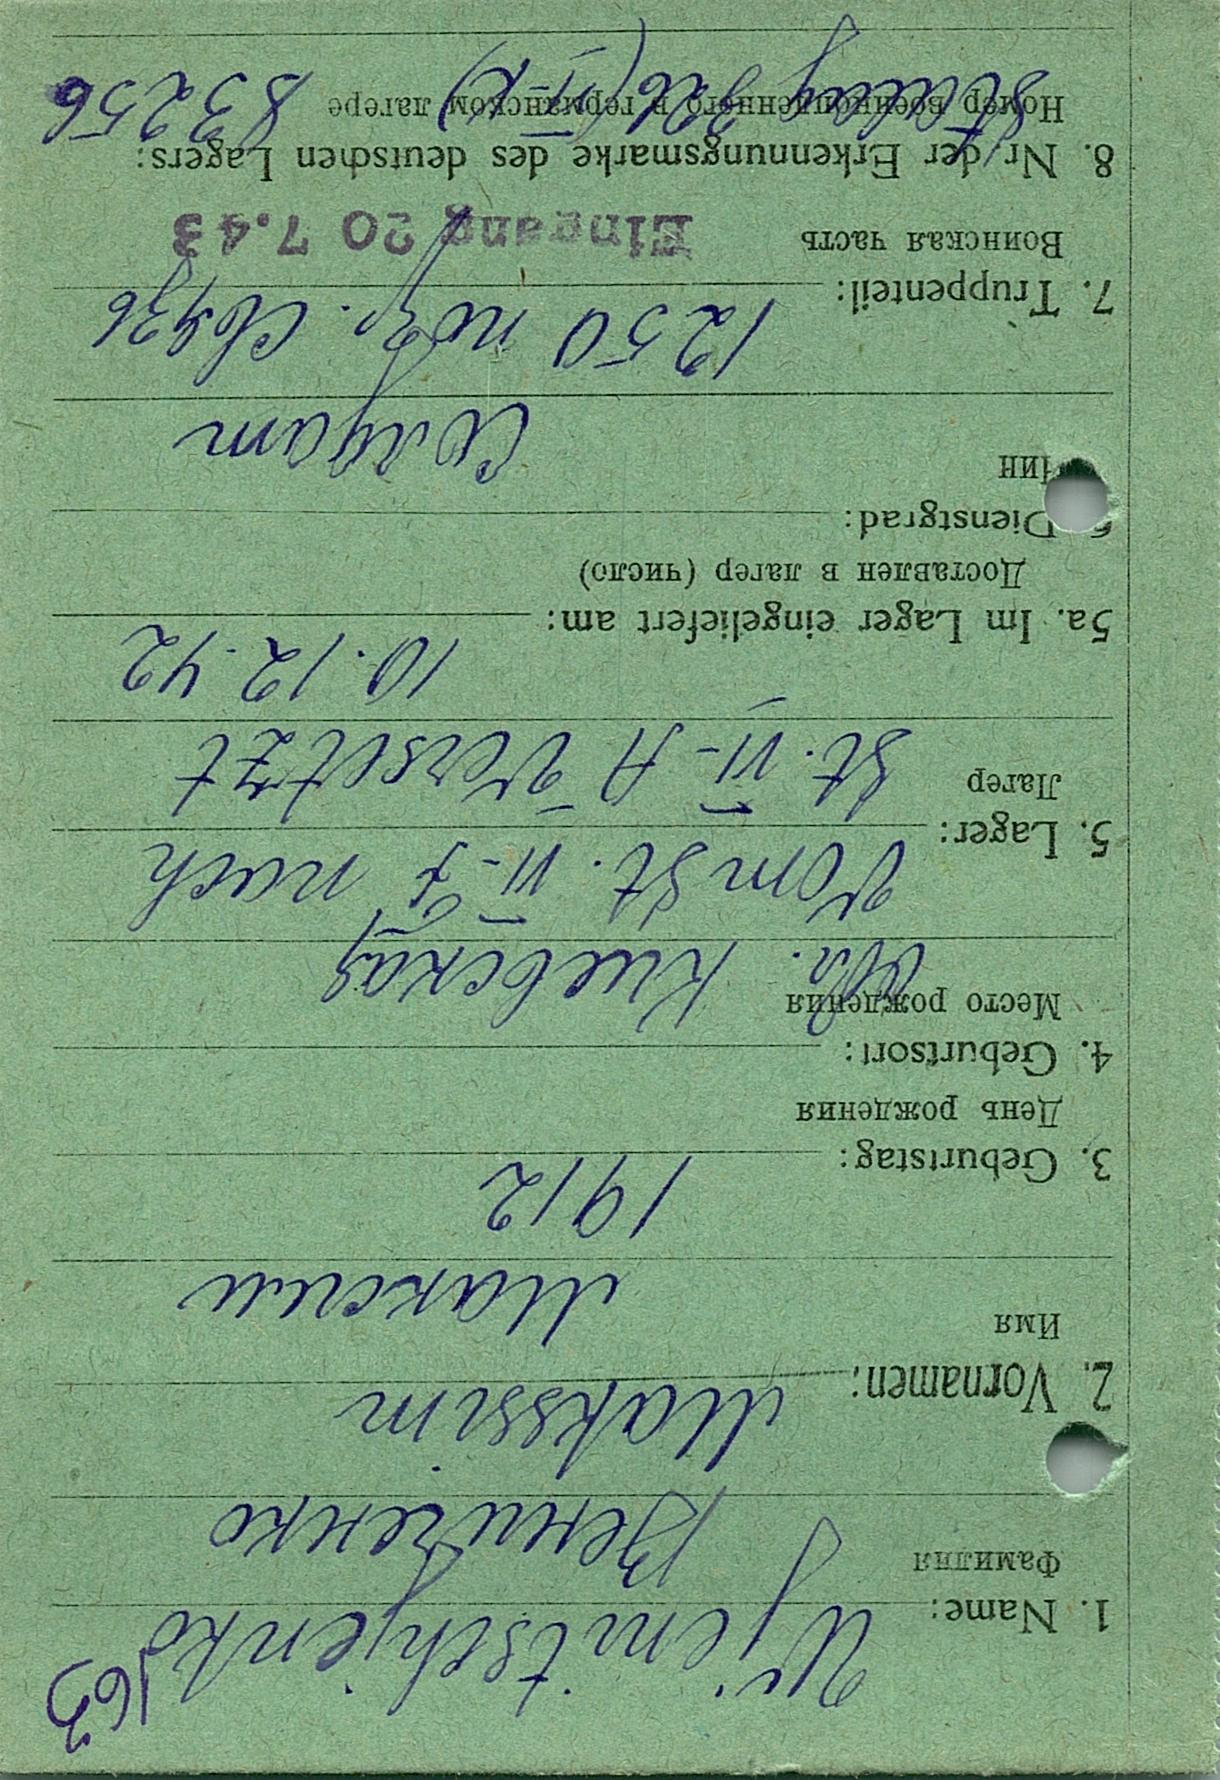 163
1. Name: Wjenitschjenko
Фамилия Вениченко
2. Vornamen: Makssim
Имя Максим
3. Geburtstag: 1912
День рождения
4. Geburtsort:
Место рождения Обл. Киевская
5. Lager: Vom St. VI-J nach
Лагер St. VI-A Versetzt
5a. Im Lager eingeliefert am: 10.12.42
Доставлен в лагер (число)
6. Dienstgrad:
Чин Солдат
7. Truppenteil: 1250
Воинская часть Eingang 20 7.43
8. Nr der Erkennungsmarke des deutschen Lagers:
Номер военнопленного в германском лагере 83256
Stalag 326 (VI-K)